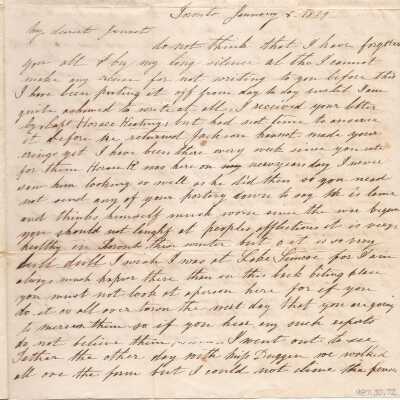 Toronto January 1839
My dearest Jennet
do not think that I have forgotten
you all & by my long silence altho I cannot
make any excuse for not writing to you before this
I have been putting it off from day to day until I am
quite ashamed to write at all I received your letter
by Capt Horace Keatings but had not time to answer
it before he returned Jackson has not made your
rings yet I have been there every week since you
for them Horace K was here on my newyearsday I never
saw him looking so well as he did then so you need
not send any of your portery down to say he is lame
and thinks himself much worse since the war began
you should not laught at peoples afflictions it is very
healthy in Toronto this winter but o it is so very
dull dull I wish I was at Lake Simcoe for I am
always much happier there than in this back biting place
you must not look at a person here for if you
do it is all over town the next day that you are going
to marry them so if you hear any such reports
do not believe them I went out to see
Father the other day with Miss Duggan we walked
all over the farm but I could not climb the fences